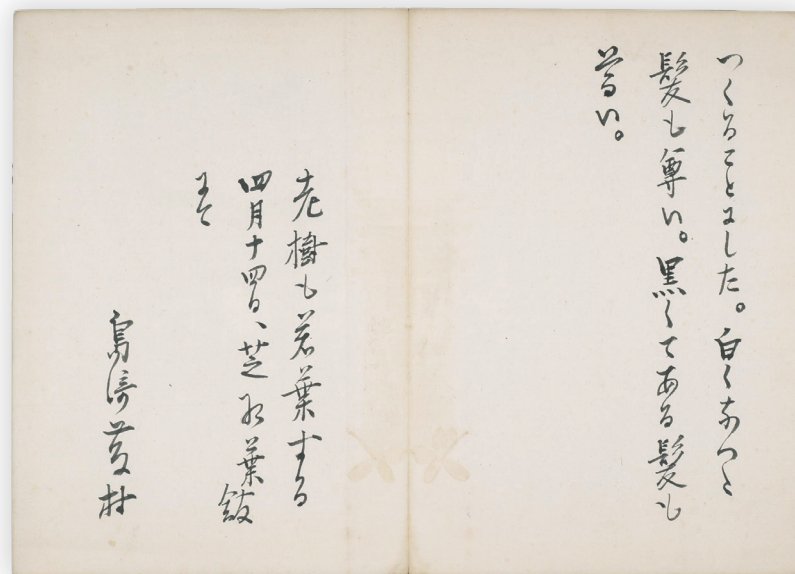 つくることにした。白くなつた
髪も尊い。黒くてある髪も
尊い。
老樹も若葉する
四月十四日、芝紅葉館
にて
島崎藤村